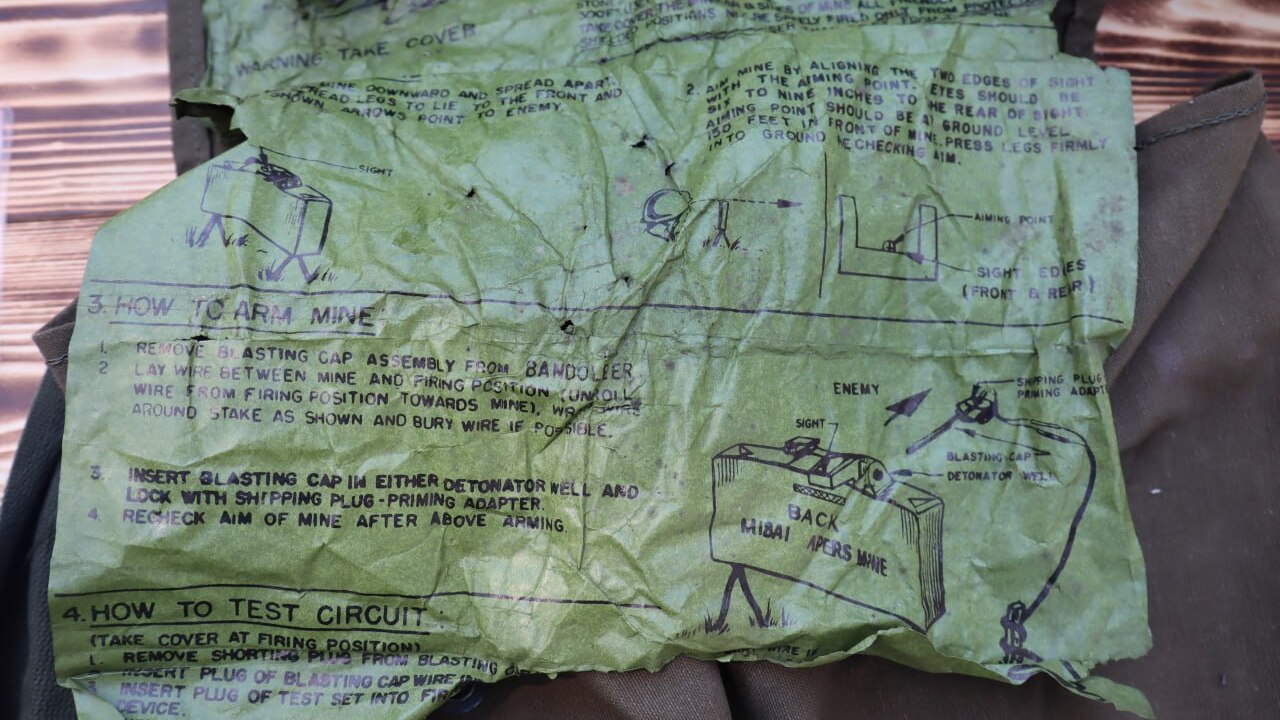 WARNING TAKE COVER
MINE DOWNWARD AND SPREAD APART.
LEGS TO LIE TO THE FRONT AND
SHOWN. ARROWS POINT TO ENEMY.
2. AIM MINE BY ALIGNING THE TWO EDGES OF SIGHT
WITH THE AIMING POINT. EYES SHOULD BE
SIX TO NINE INCHES TO THE REAR OF SIGHT.
AIMING POINT SHOULD BE AT GROUND LEVEL
150 FEET IN FRONT OF MINE. PRESS LEGS FIRMLY
INTO GROUND RECHECKING AIM.
SIGHT
AIMING POINT
SIGHT EDGES
(FRONT & REAR)
3. HOW TO ARM MINE
1. REMOVE BLASTING CAP ASSEMBLY FROM BANDOLEER.
2 LAY WIRE BETWEEN MINE AND FIRING POSITION (UNROLL
WIRE FROM FIRING POSITION TOWARDS MINE), WRAP WIRE
AROUND STAKE AS SHOWN AND BURY WIRE IF POSSIBLE.
3. INSERT BLASTING CAP IN EITHER DETONATOR WELL AND
LOCK WITH SHIPPING PLUG-PRIMING ADAPTER.
4. RECHECK AIM OF MINE AFTER ABOVE ARMING.
ENEMY
SHIPPING PLUG
PRIMING ADAPT
SIGHT
BLASTING CAP
DETONATOR WELL
BACK
M18A1 APERS MINE
4. HOW TO TEST CIRCUIT
(TAKE COVER AT FIRING POSITION)
1. REMOVE SHORTING PLUG FROM BLASTING
INSERT PLUG OF BLASTING CAP WIRE
INSERT PLUG OF TEST SET INTO
DEVICE.
WIRE